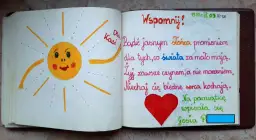 Dla
Kasi
Wspomnij!
Bądź jasnym słońca promieniem
dla tych, co świata za mało mają,
Żyj zawsze czynem, a nie marzeniem,
Niechaj Cię błędne serca kochają.
Na pamiątkę
wpisała się
Gosia